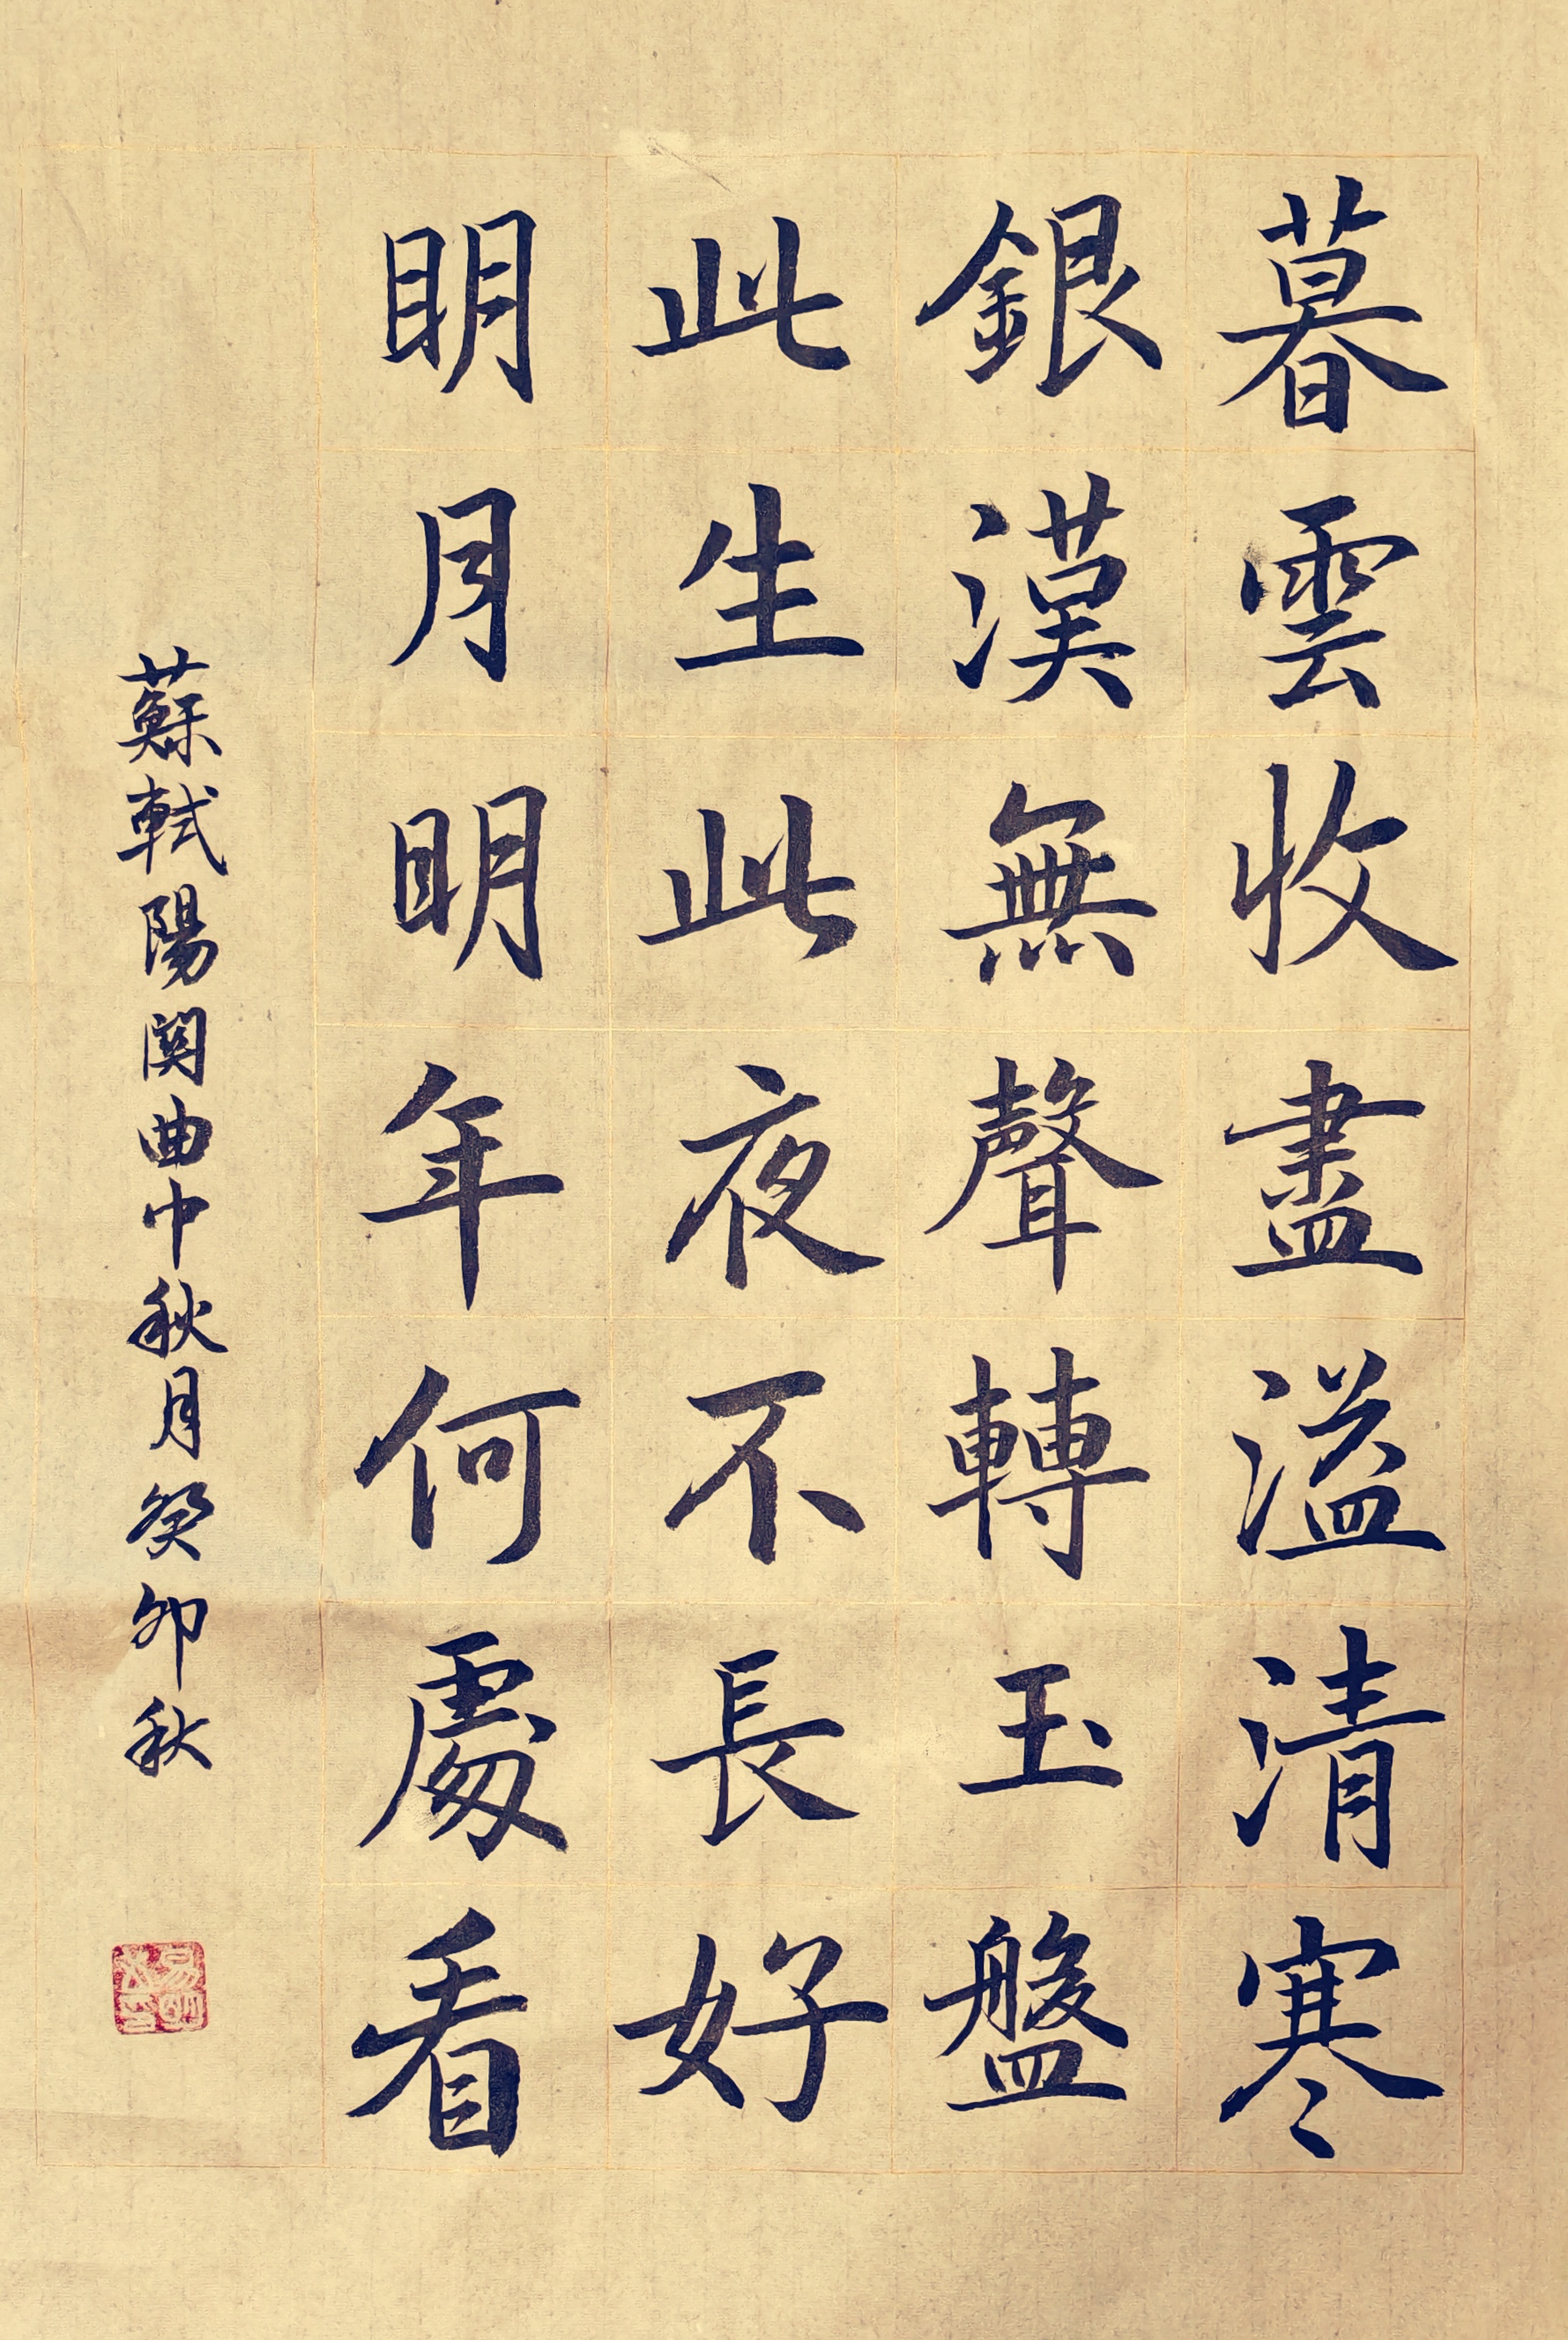 暮雲收盡溢清寒
銀漢無聲轉玉盤
此生此夜不長好
明月明年何處看
蘇軾陽関曲中秋月癸卯秋